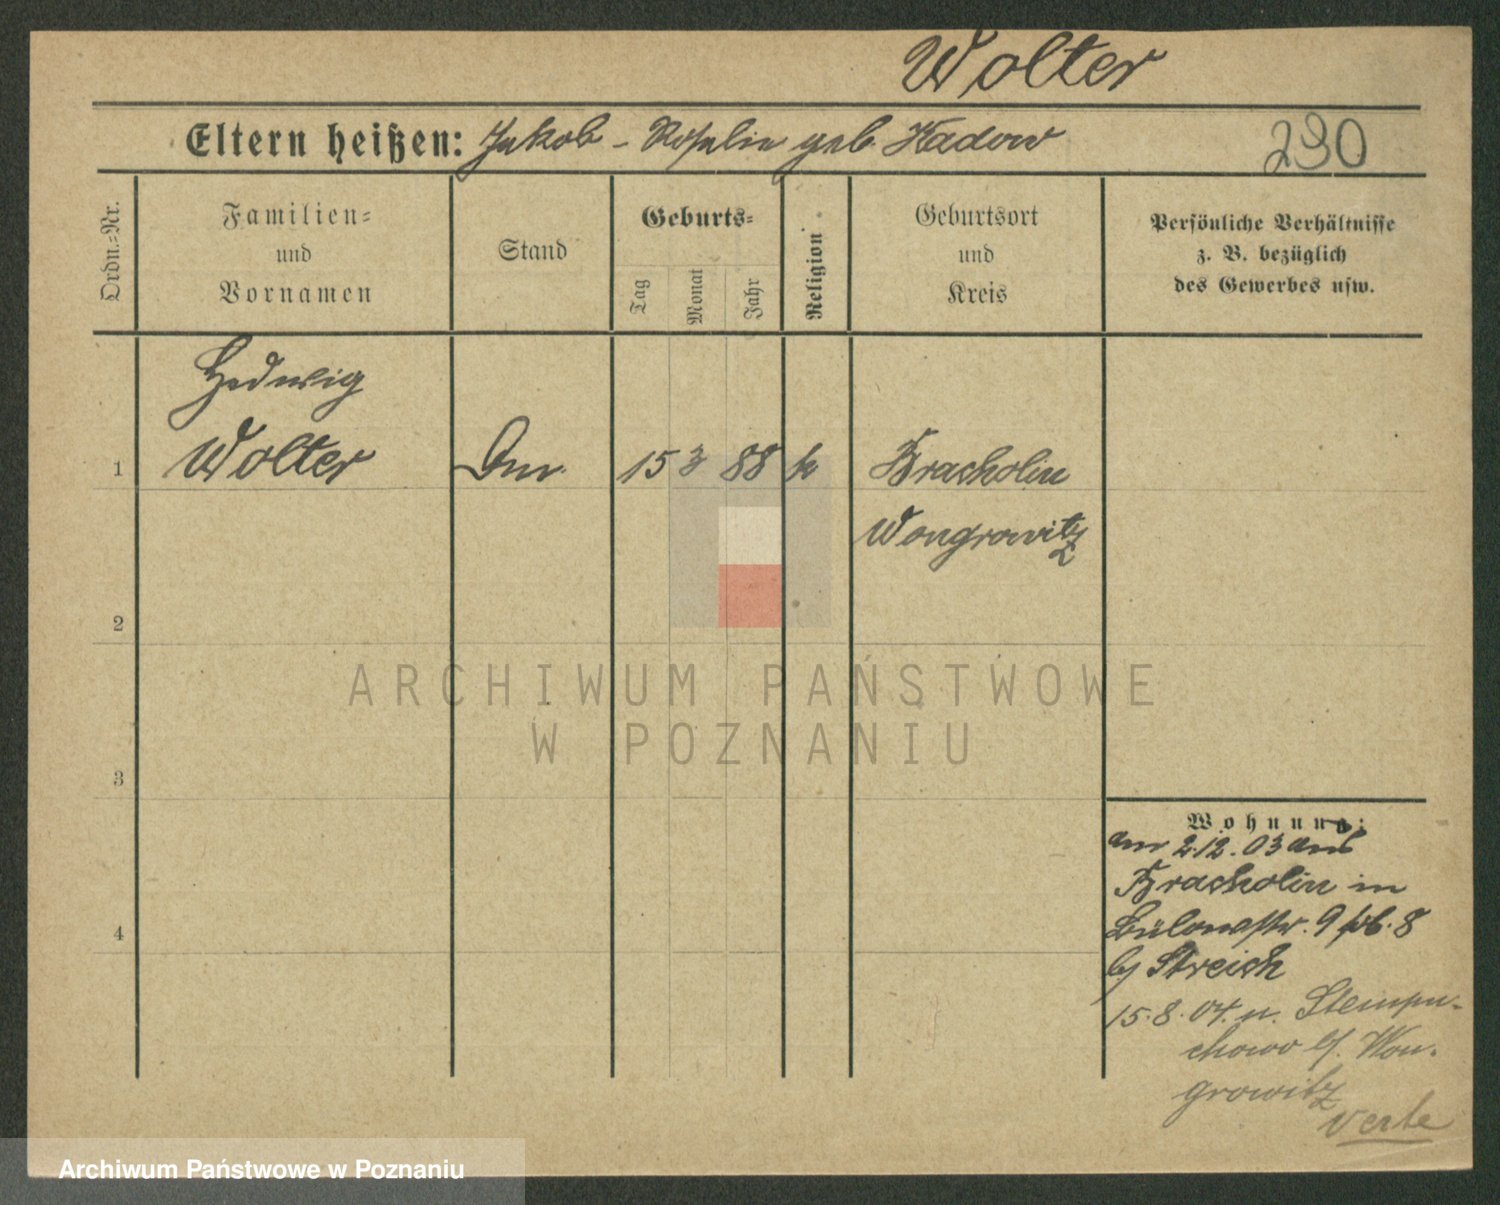 Wolter
Eltern heißen: Jakob - Rosalie geb. Kadow
290
Ordn.=Nr.
Familien=
und
Vornamen
Stand
Geburts=
Tag
Monat
Jahr
Religion
Geburtsort
und
Kreis
Persönliche Verhältnisse
z. B. bezüglich
des Gewerbes usw.
Hedwig
1 Wolter 15 3 88 k Bracholin
Wongrowitz
2
3
4
Wohnung:
am 2.12.03 aus
Bracholin in
Bülowstr. 9 8
bj Streich
15.8.04. n. Stempu-
chowo b/. Won-
growitz
verte
ARCHIWUM PAŃSTWOWE
W POZNANIU
Archiwum Państwowe w Poznaniu